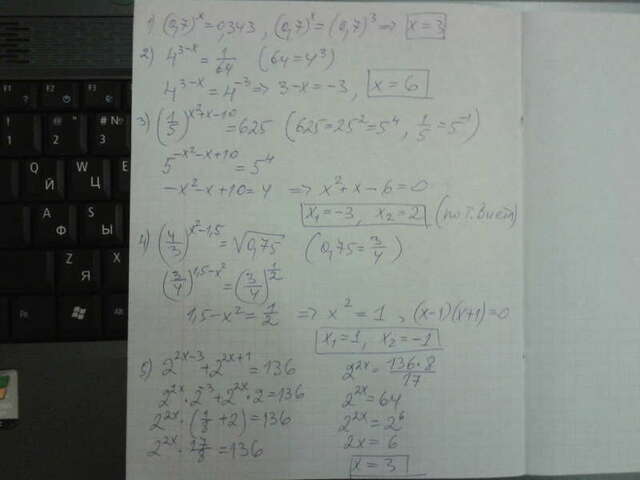 1) (0,7)^x = 0,343, (0,7)^x = (0,7)^3 => x = 3
2) 4^(3-x) = 1/64 (64 = 4^3)
4^(3-x) = 4^(-3) => 3-x = -3, x = 6
3) (1/5)^(x²+x-10) = 625 (625 = 25² = 5^4, 1/5 = 5^(-1))
5^(-x²-x+10) = 5^4
-x²-x+10 = 4 => x²+x-6 = 0
x₁ = -3, x₂ = 2 (по т. Виета)
4) (4/3)^(x²-1,5) = √0,75 (0,75 = 3/4)
(3/4)^(1,5-x²) = (3/4)^(1/2)
1,5-x² = 1/2 => x² = 1, (x-1)(x+1) = 0
x₁ = 1, x₂ = -1
5) 2^(2x-3) + 2^(2x+1) = 136
2^(2x) · 2^(-3) + 2^(2x) · 2 = 136
2^(2x) · (1/8 + 2) = 136
2^(2x) · 17/8 = 136
2^(2x) = 136·8/17
2^(2x) = 64
2^(2x) = 2^6
2x = 6
x = 3
Esc
F1
F2
! 1
2
№ 3
Q Й
W Ц
A Ф
S Ы
Z Я
Fn
Alt